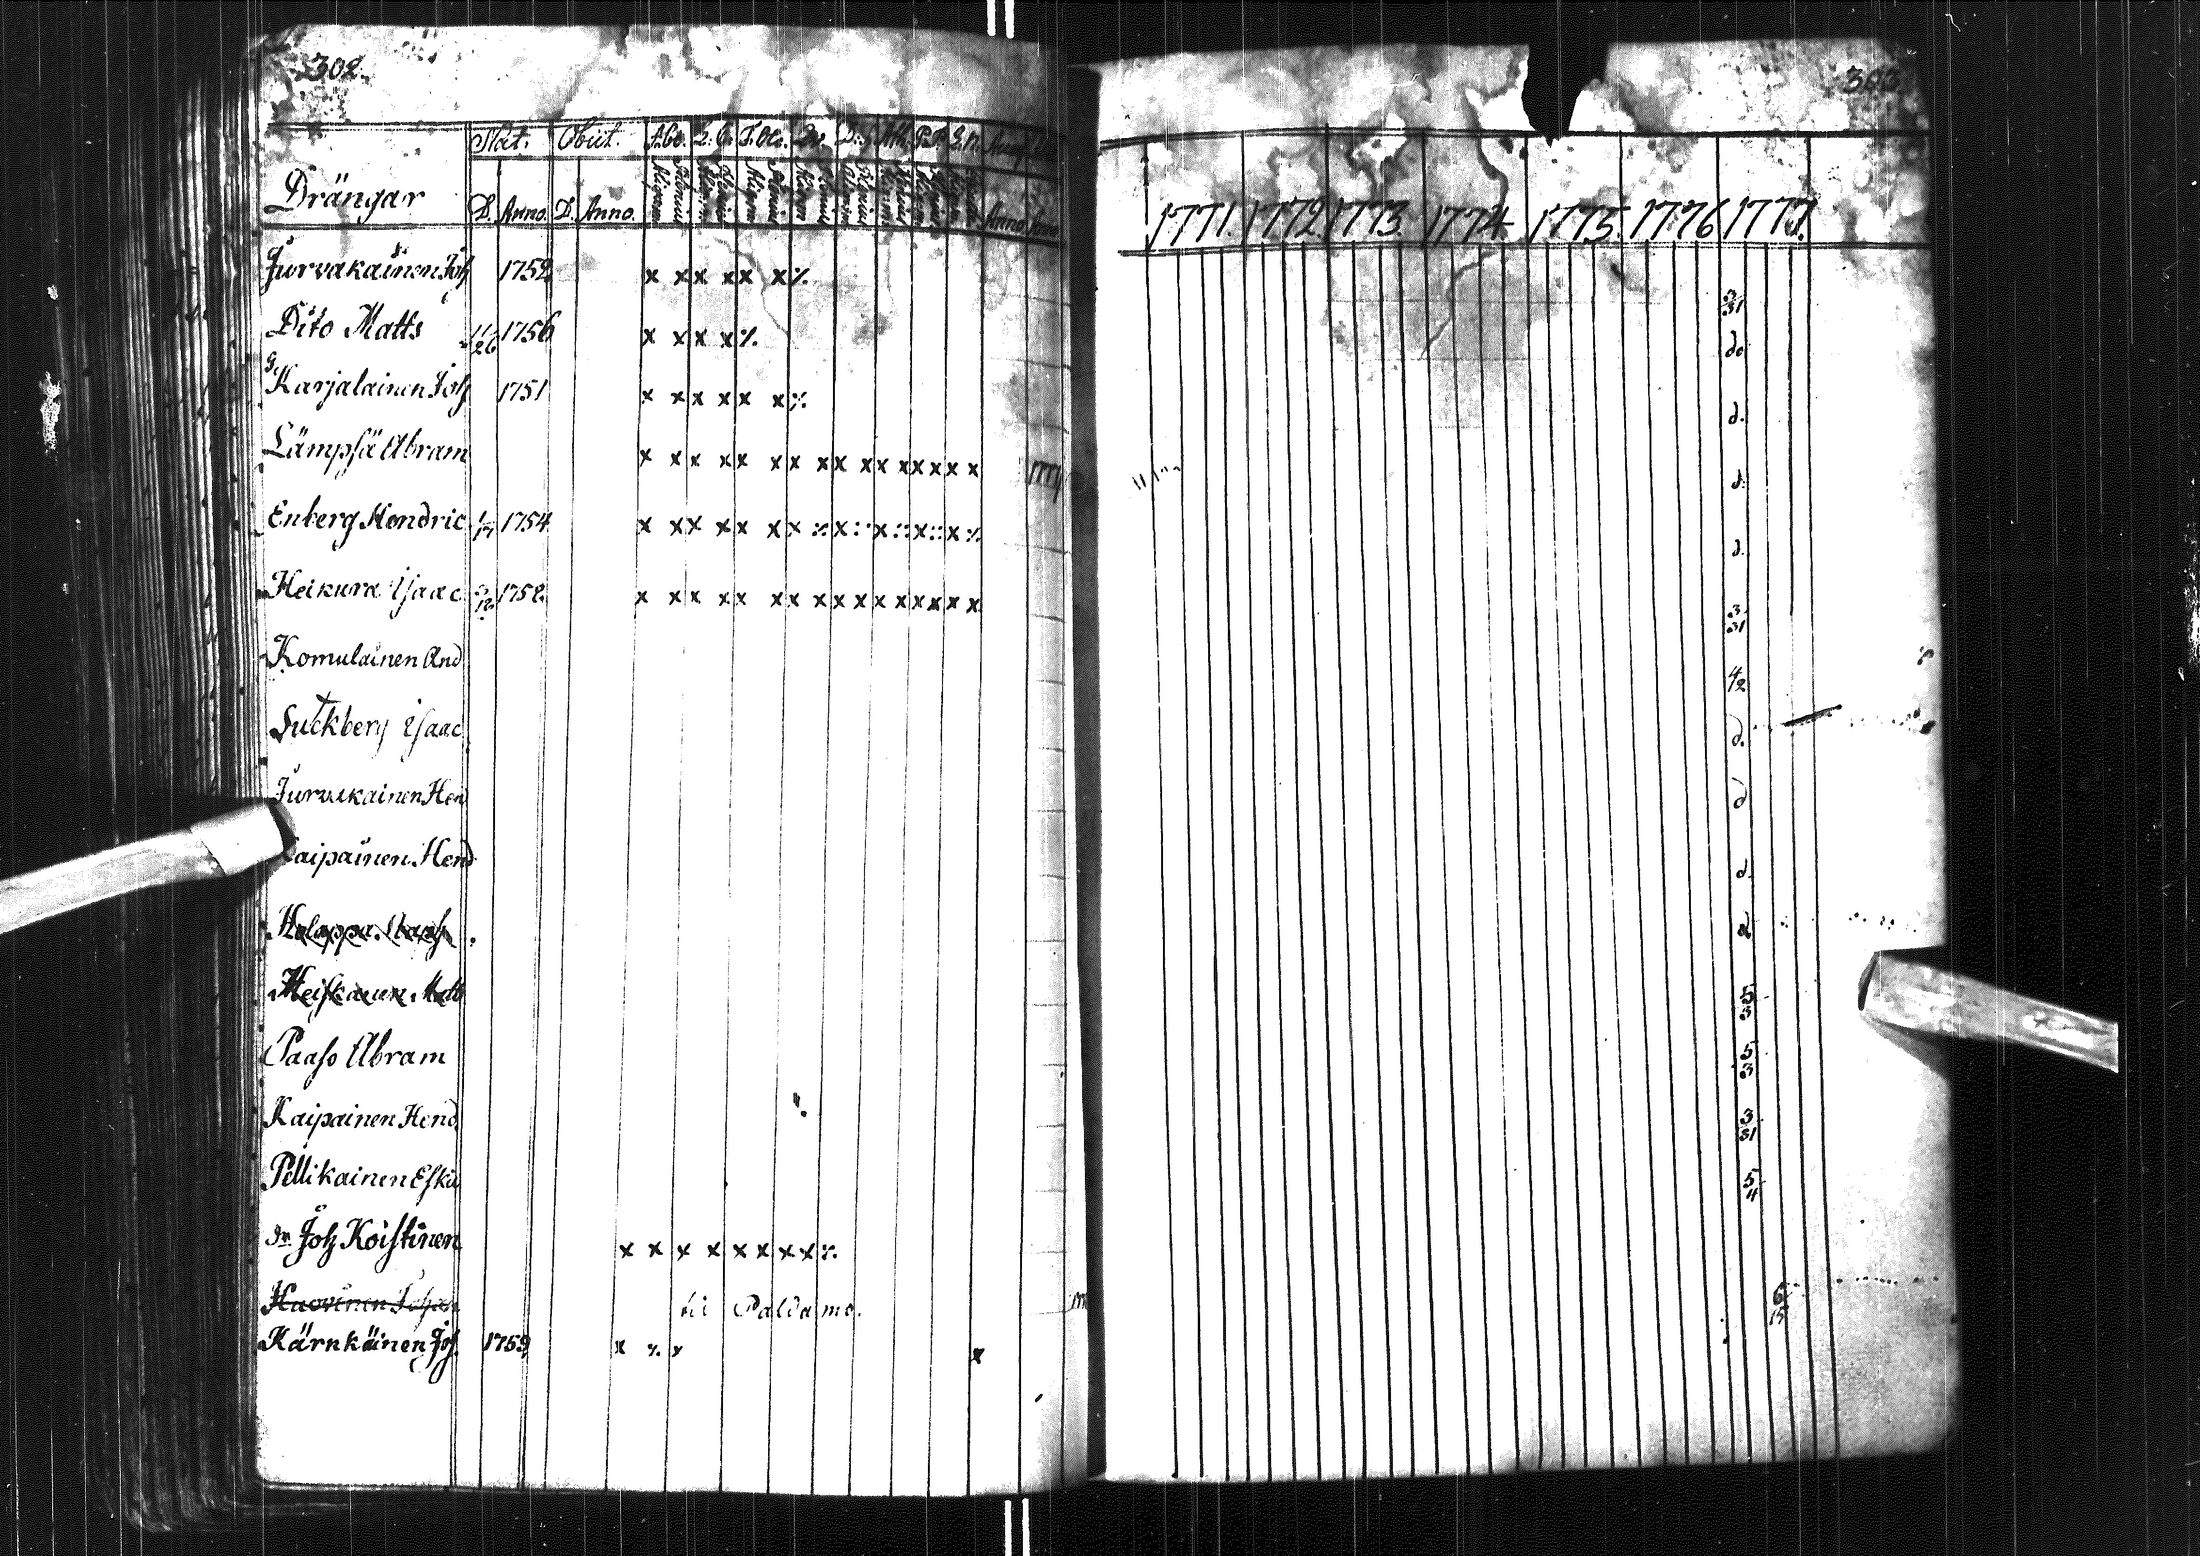 302.
303
Nat. Obiit. A.bo.
Drängar D. Anno. D. Anno. Anno Anno
1771. 1772 1773. 1774 1775. 1776 1777.
Jurvakainen Joh 1752 x x x x x x ٪ 3/31
Dito Matts 11/26 1756 x x x x ٪ do
Karjalainen Joh 1751 x x x x x x ٪ d.
Lämpsä Abram x x x x x x x x x x x x x x x x d.
Enberg Hendric 1/17 1754 x x x x x x x ٪ x :: x :: x :: x ٪ d.
Heikura Isaac 1752 x x x x x x x x x x x x x x x x 3/31
Komulainen And 4/2
Suckberg Isaac d.
Jurvakainen Hen d
aipainen Hend d.
Holappa d
Heiskanen Matts 5/3
Paaso Abram 5/3
Kaipainen Hend 3/31
Pellikainen Eski 5/4
Joh Koistinen x x x x x x x x ٪
Huovinen Johan til Paldamo. 6/15
Kärnkäinen Joh. 1759 x ٪ x x